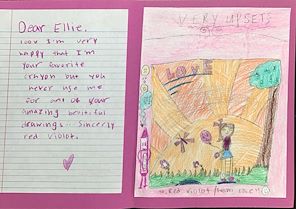 Dear Ellie,
look I'm very
happy that I'm
your favorite
crayon but you
never use me
for one of your
amazing beutiful
drawings. Sincerly
red violot.
VERY UPSET
LOVE
red violot